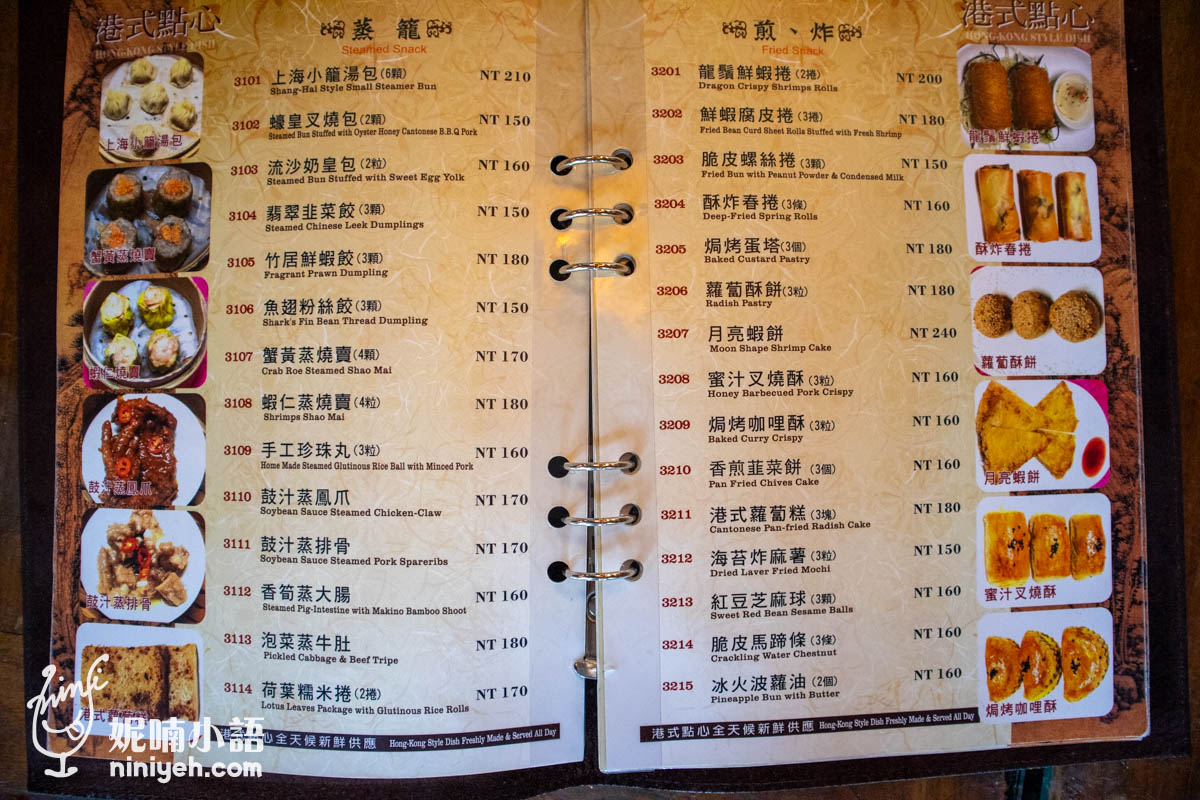 港式點心
HONG-KONG STYLE DISH
蒸籠
Steamed Snack
3101 上海小籠湯包(6顆) NT 210
Shang-Hai Style Small Steamer Bun
3102 蠔皇叉燒包(2顆) NT 150
Steamed Bun Stuffed with Oyster Honey Cantonese B.B.Q Pork
3103 流沙奶皇包(2粒) NT 160
Steamed Bun Stuffed with Sweet Egg Yolk
3104 翡翠韭菜餃(3顆) NT 150
Steamed Chinese Leek Dumplings
3105 竹居鮮蝦餃(3顆) NT 180
Fragrant Prawn Dumpling
3106 魚翅粉絲餃(3顆) NT 150
Shark's Fin Bean Thread Dumpling
3107 蟹黃蒸燒賣(4顆) NT 170
Crab Roe Steamed Shao Mai
3108 蝦仁蒸燒賣(4粒) NT 180
Shrimps Shao Mai
3109 手工珍珠丸(3粒) NT 160
Home Made Steamed Glutinous Rice Ball with Minced Pork
3110 鼓汁蒸鳳爪 NT 170
Soybean Sauce Steamed Chicken-Claw
3111 鼓汁蒸排骨 NT 170
Soybean Sauce Steamed Pork Spareribs
3112 香筍蒸大腸 NT 160
Steamed Pig-Intestine with Makino Bamboo Shoot
3113 泡菜蒸牛肚 NT 180
Pickled Cabbage & Beef Tripe
3114 荷葉糯米捲(2捲) NT 170
Lotus Leaves Package with Glutinous Rice Rolls
港式點心全天候新鮮供應 Hong-Kong Style Dish Freshly Made & Served All Day
上海小籠湯包
蟹黃蒸燒賣
蝦仁燒賣
鼓汁蒸鳳爪
鼓汁蒸排骨
港式
妮喃小語
niniyeh.com
港式點心
HONG-KONG STYLE DISH
煎、炸
Fried Snack
3201 龍鬚鮮蝦捲(2捲) NT 200
Dragon Crispy Shrimps Rolls
3202 鮮蝦腐皮捲(3捲) NT 180
Fried Bean Curd Sheet Rolls Stuffed with Fresh Shrimp
3203 脆皮螺絲捲(3顆) NT 150
Fried Bun with Peanut Powder & Condensed Milk
3204 酥炸春捲(3條) NT 160
Deep-Fried Spring Rolls
3205 焗烤蛋塔(3個) NT 180
Baked Custard Pastry
3206 蘿蔔酥餅(3粒) NT 180
Radish Pastry
3207 月亮蝦餅 NT 240
Moon Shape Shrimp Cake
3208 蜜汁叉燒酥(3粒) NT 160
Honey Barbecued Pork Crispy
3209 焗烤咖哩酥(3粒) NT 160
Baked Curry Crispy
3210 香煎韭菜餅(3個) NT 160
Pan Fried Chives Cake
3211 港式蘿蔔糕(3塊) NT 180
Cantonese Pan-fried Radish Cake
3212 海苔炸麻薯(3粒) NT 150
Dried Laver Fried Mochi
3213 紅豆芝麻球(3顆) NT 160
Sweet Red Bean Sesame Balls
3214 脆皮馬蹄條(3條) NT 160
Crackling Water Chestnut
3215 冰火波蘿油(2個) NT 160
Pineapple Bun with Butter
港式點心全天候新鮮供應 Hong-Kong Style Dish Freshly Made & Served All Day
龍鬚鮮蝦捲
酥炸春捲
蘿蔔酥餅
月亮蝦餅
蜜汁叉燒酥
焗烤咖哩酥